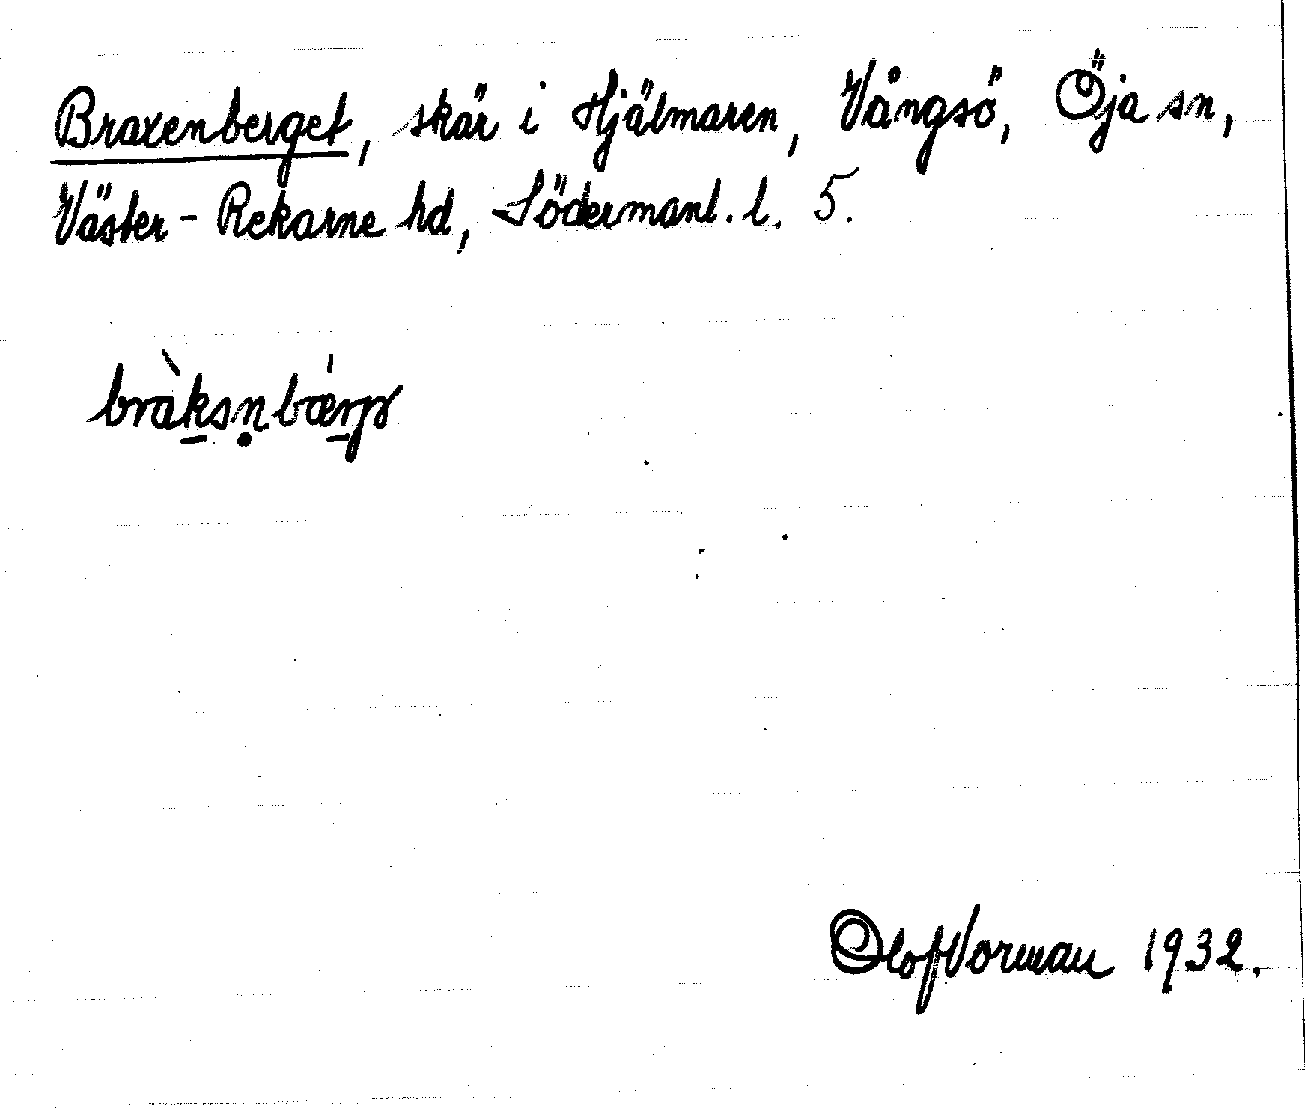 Braxenberget, skär i Hjälmaren, Vångsö, Öja sn,
Väster-Rekarne hd, Södermanl. l. 5.
bràk̠sṇbæ̇́r̠jə
Olof Vorman 1932.